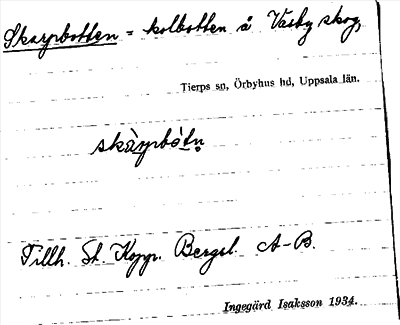 Skarpbotten = kolbotten å Vasby skog,
Tierps sn, Örbyhus hd, Uppsala län.
skàrpbótṇ
Tillh. St. Kopp. Bergsl. A-B.
Ingegärd Isaksson 1934.